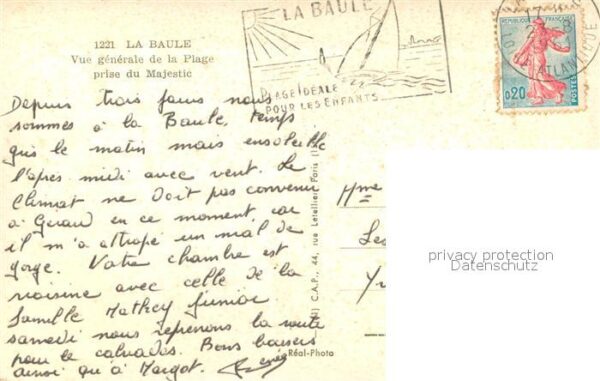 1221 LA BAULE
Vue générale de la Plage
prise du Majestic
LA BAULE
PLAGE IDÉALE
POUR LES ENFANTS
RÉPUBLIQUE FRANÇAISE
0,20
POSTES
17
8
ATLANTIQUE
Depuis trois jours nous
sommes à la Baule, temps
gris le matin mais ensoleillé
l'après midi avec vent. Le
Climat ne doit pas convenir
à Géraud en ce moment, car
il m'a attrapé un mal de
gorge. Votre chambre est
voisine avec celle de la
famille Mathey junior
samedi nous reprenons la route
pour le calvados. Bons baisers
ainsi qu'à Margot.
C.A.P., 44, rue Letellier, Paris
Réal-Photo
Mme
Les
privacy protection
Datenschutz